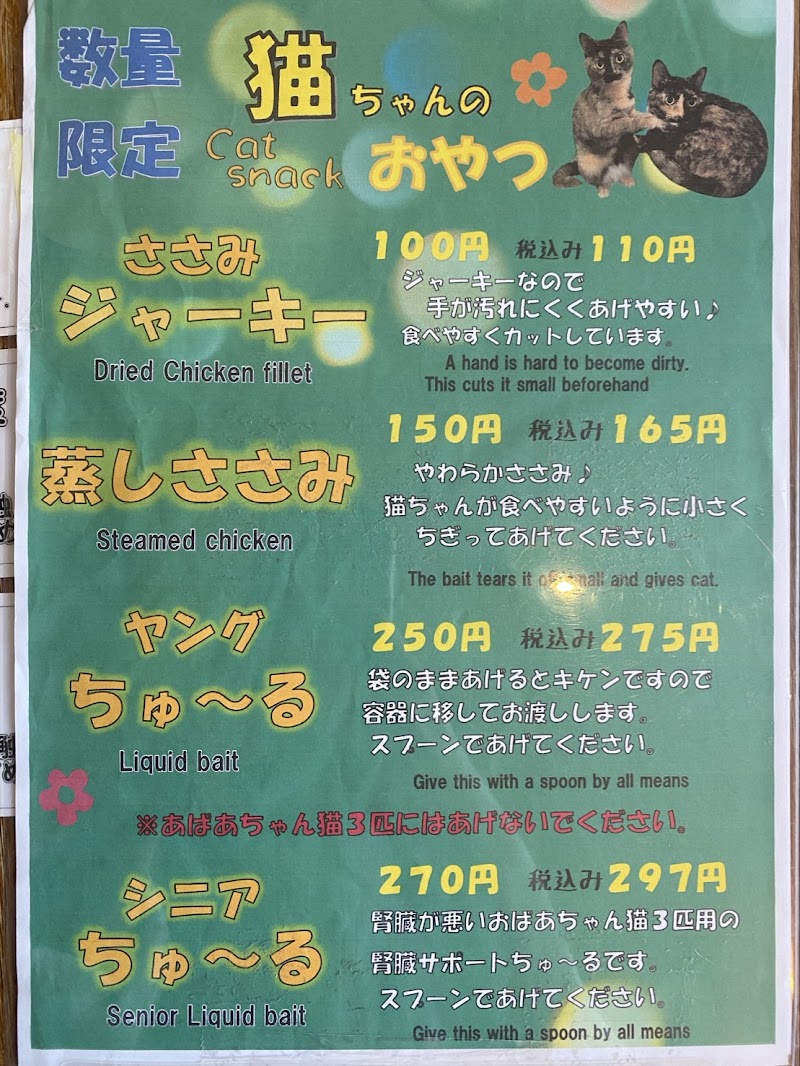 数量
限定
猫ちゃんの
おやつ
Cat
snack
ささみ
ジャーキー
Dried Chicken fillet
100円 税込み110円
ジャーキーなので
手が汚れにくくあげやすい♪
食べやすくカットしています。
A hand is hard to become dirty.
This cuts it small beforehand
蒸しささみ
Steamed chicken
150円 税込み165円
やわらかささみ♪
猫ちゃんが食べやすいように小さく
ちぎってあげてください。
The bait tears it off small and gives cat.
ヤング
ちゅ〜る
Liquid bait
250円 税込み275円
袋のままあげるとキケンですので
容器に移してお渡しします。
スプーンであげてください。
Give this with a spoon by all means
※おばあちゃん猫3匹にはあげないでください。
シニア
ちゅ〜る
Senior Liquid bait
270円 税込み297円
腎臓が悪いおばあちゃん猫3匹用の
腎臓サポートちゅ〜るです。
スプーンであげてください。
Give this with a spoon by all means